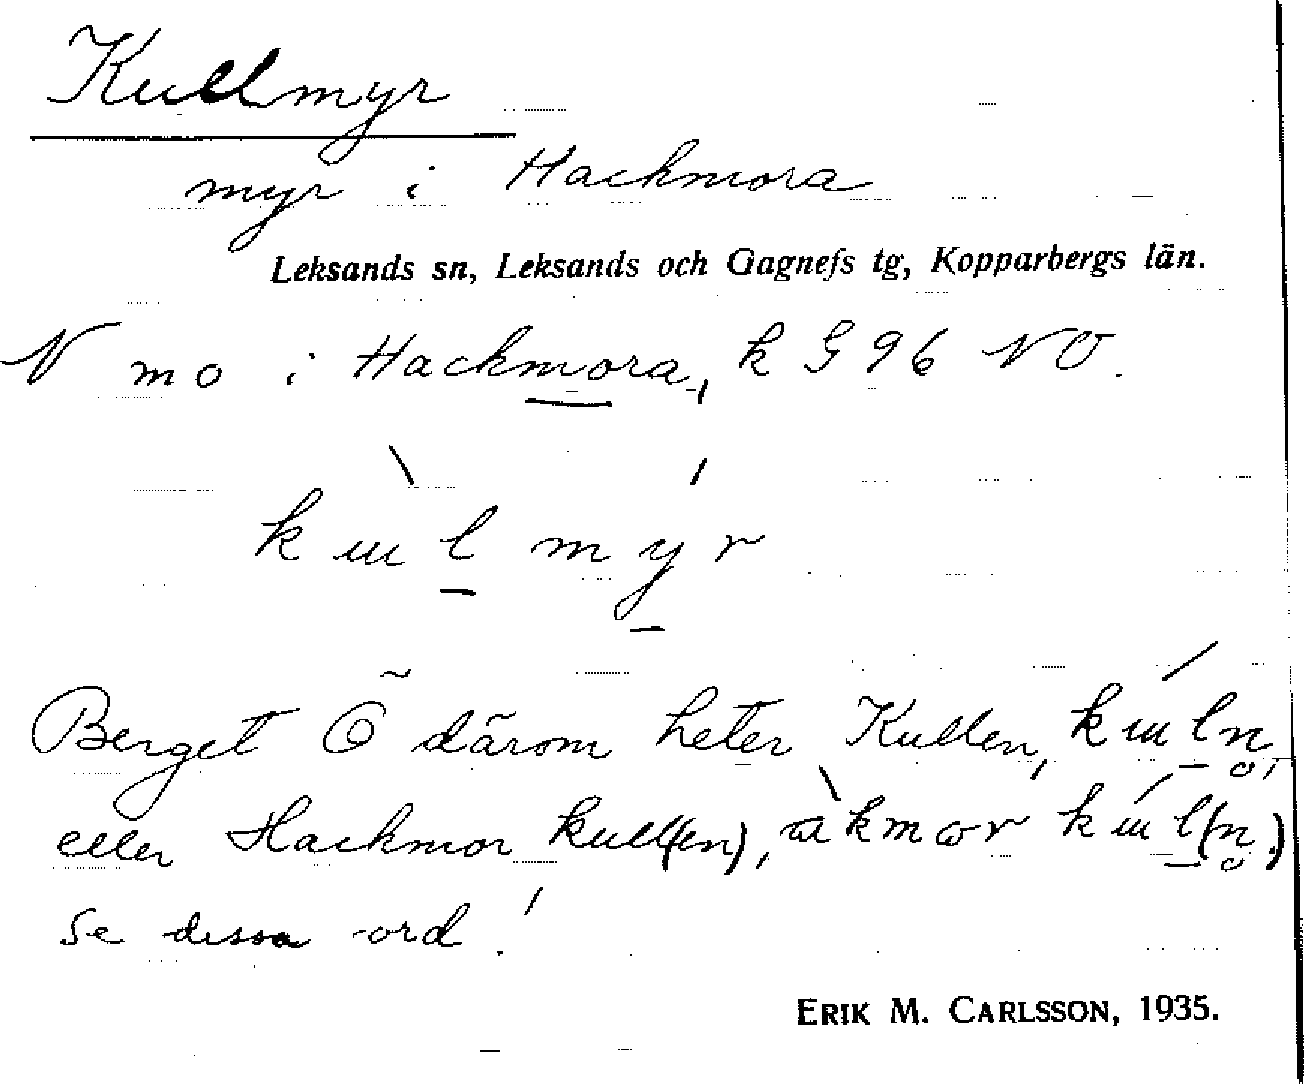 Kullmyr
myr i Hackmora
Leksands sn, Leksands och Gagnefs tg, Kopparbergs län.
N mo i Hackmora, k G 96 NO.
kɯlmyr
Berget Ö därom heter Kullen, kɯln̥,
eller Hackmor kull(en), akmɷr kɯl(n̥.)
Se dessa ord!
ERIK M. CARLSSON, 1935.